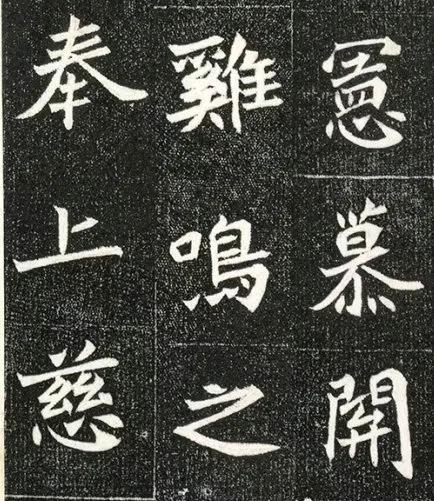 慕開
雞鳴之
奉上慈